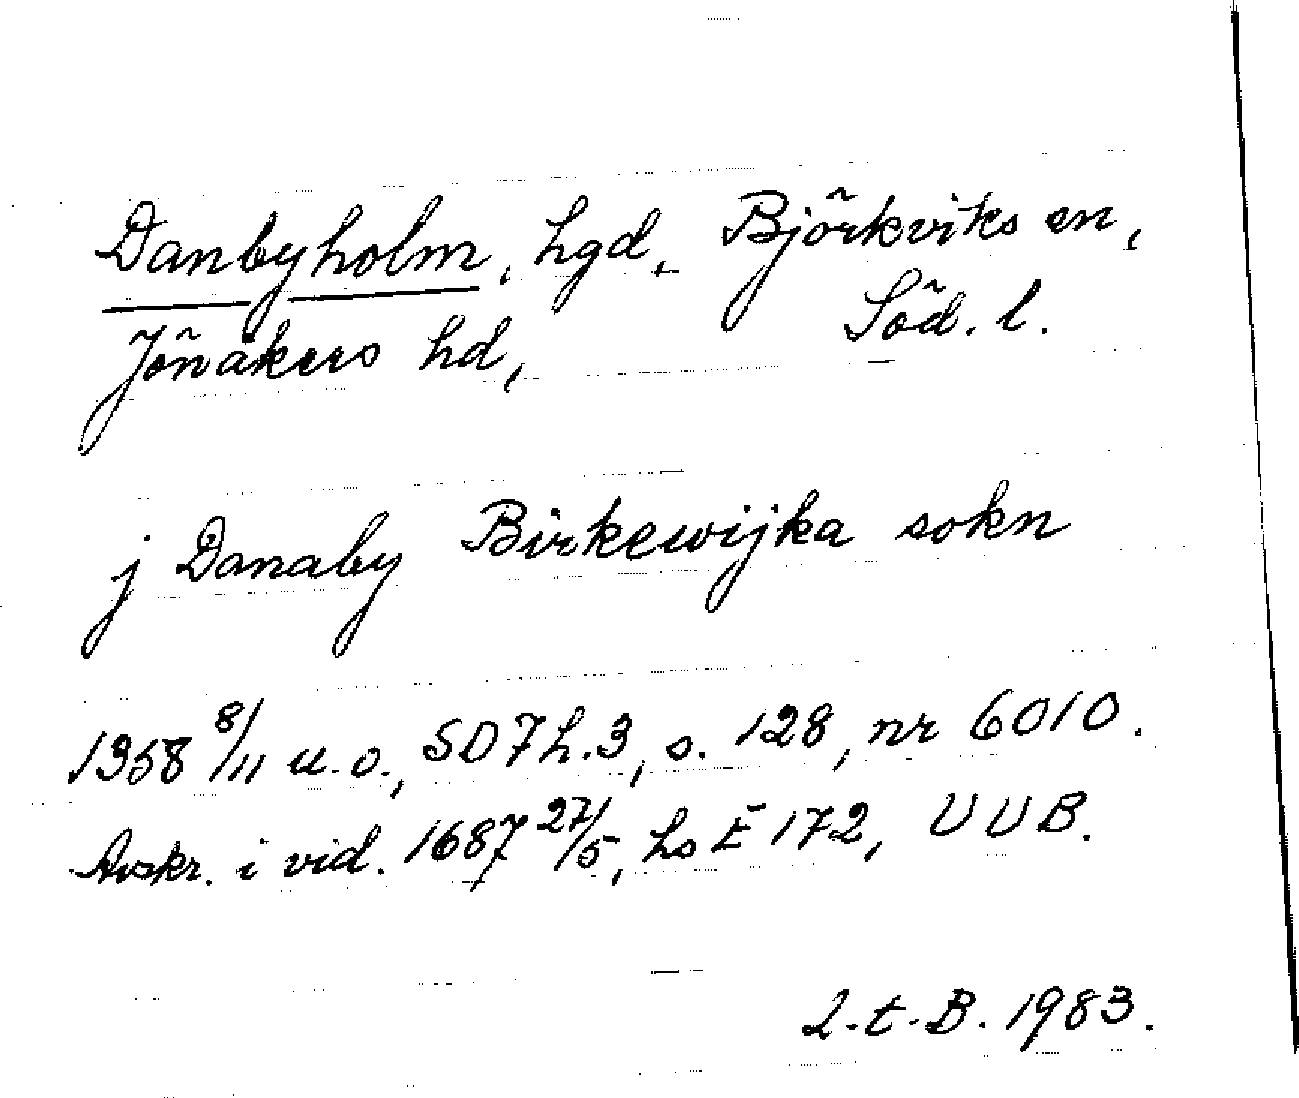 Danbyholm, hgd, Björkviks sn,
Jönåkers hd, Söd. l.
j Danaby Birkewijka sokn
1358 8/11 u.o., SD7h.3, s. 128, nr 6010.
Avskr. i vid. 1687 27/5, hs E 172, UUB.
L.t.B. 1983.